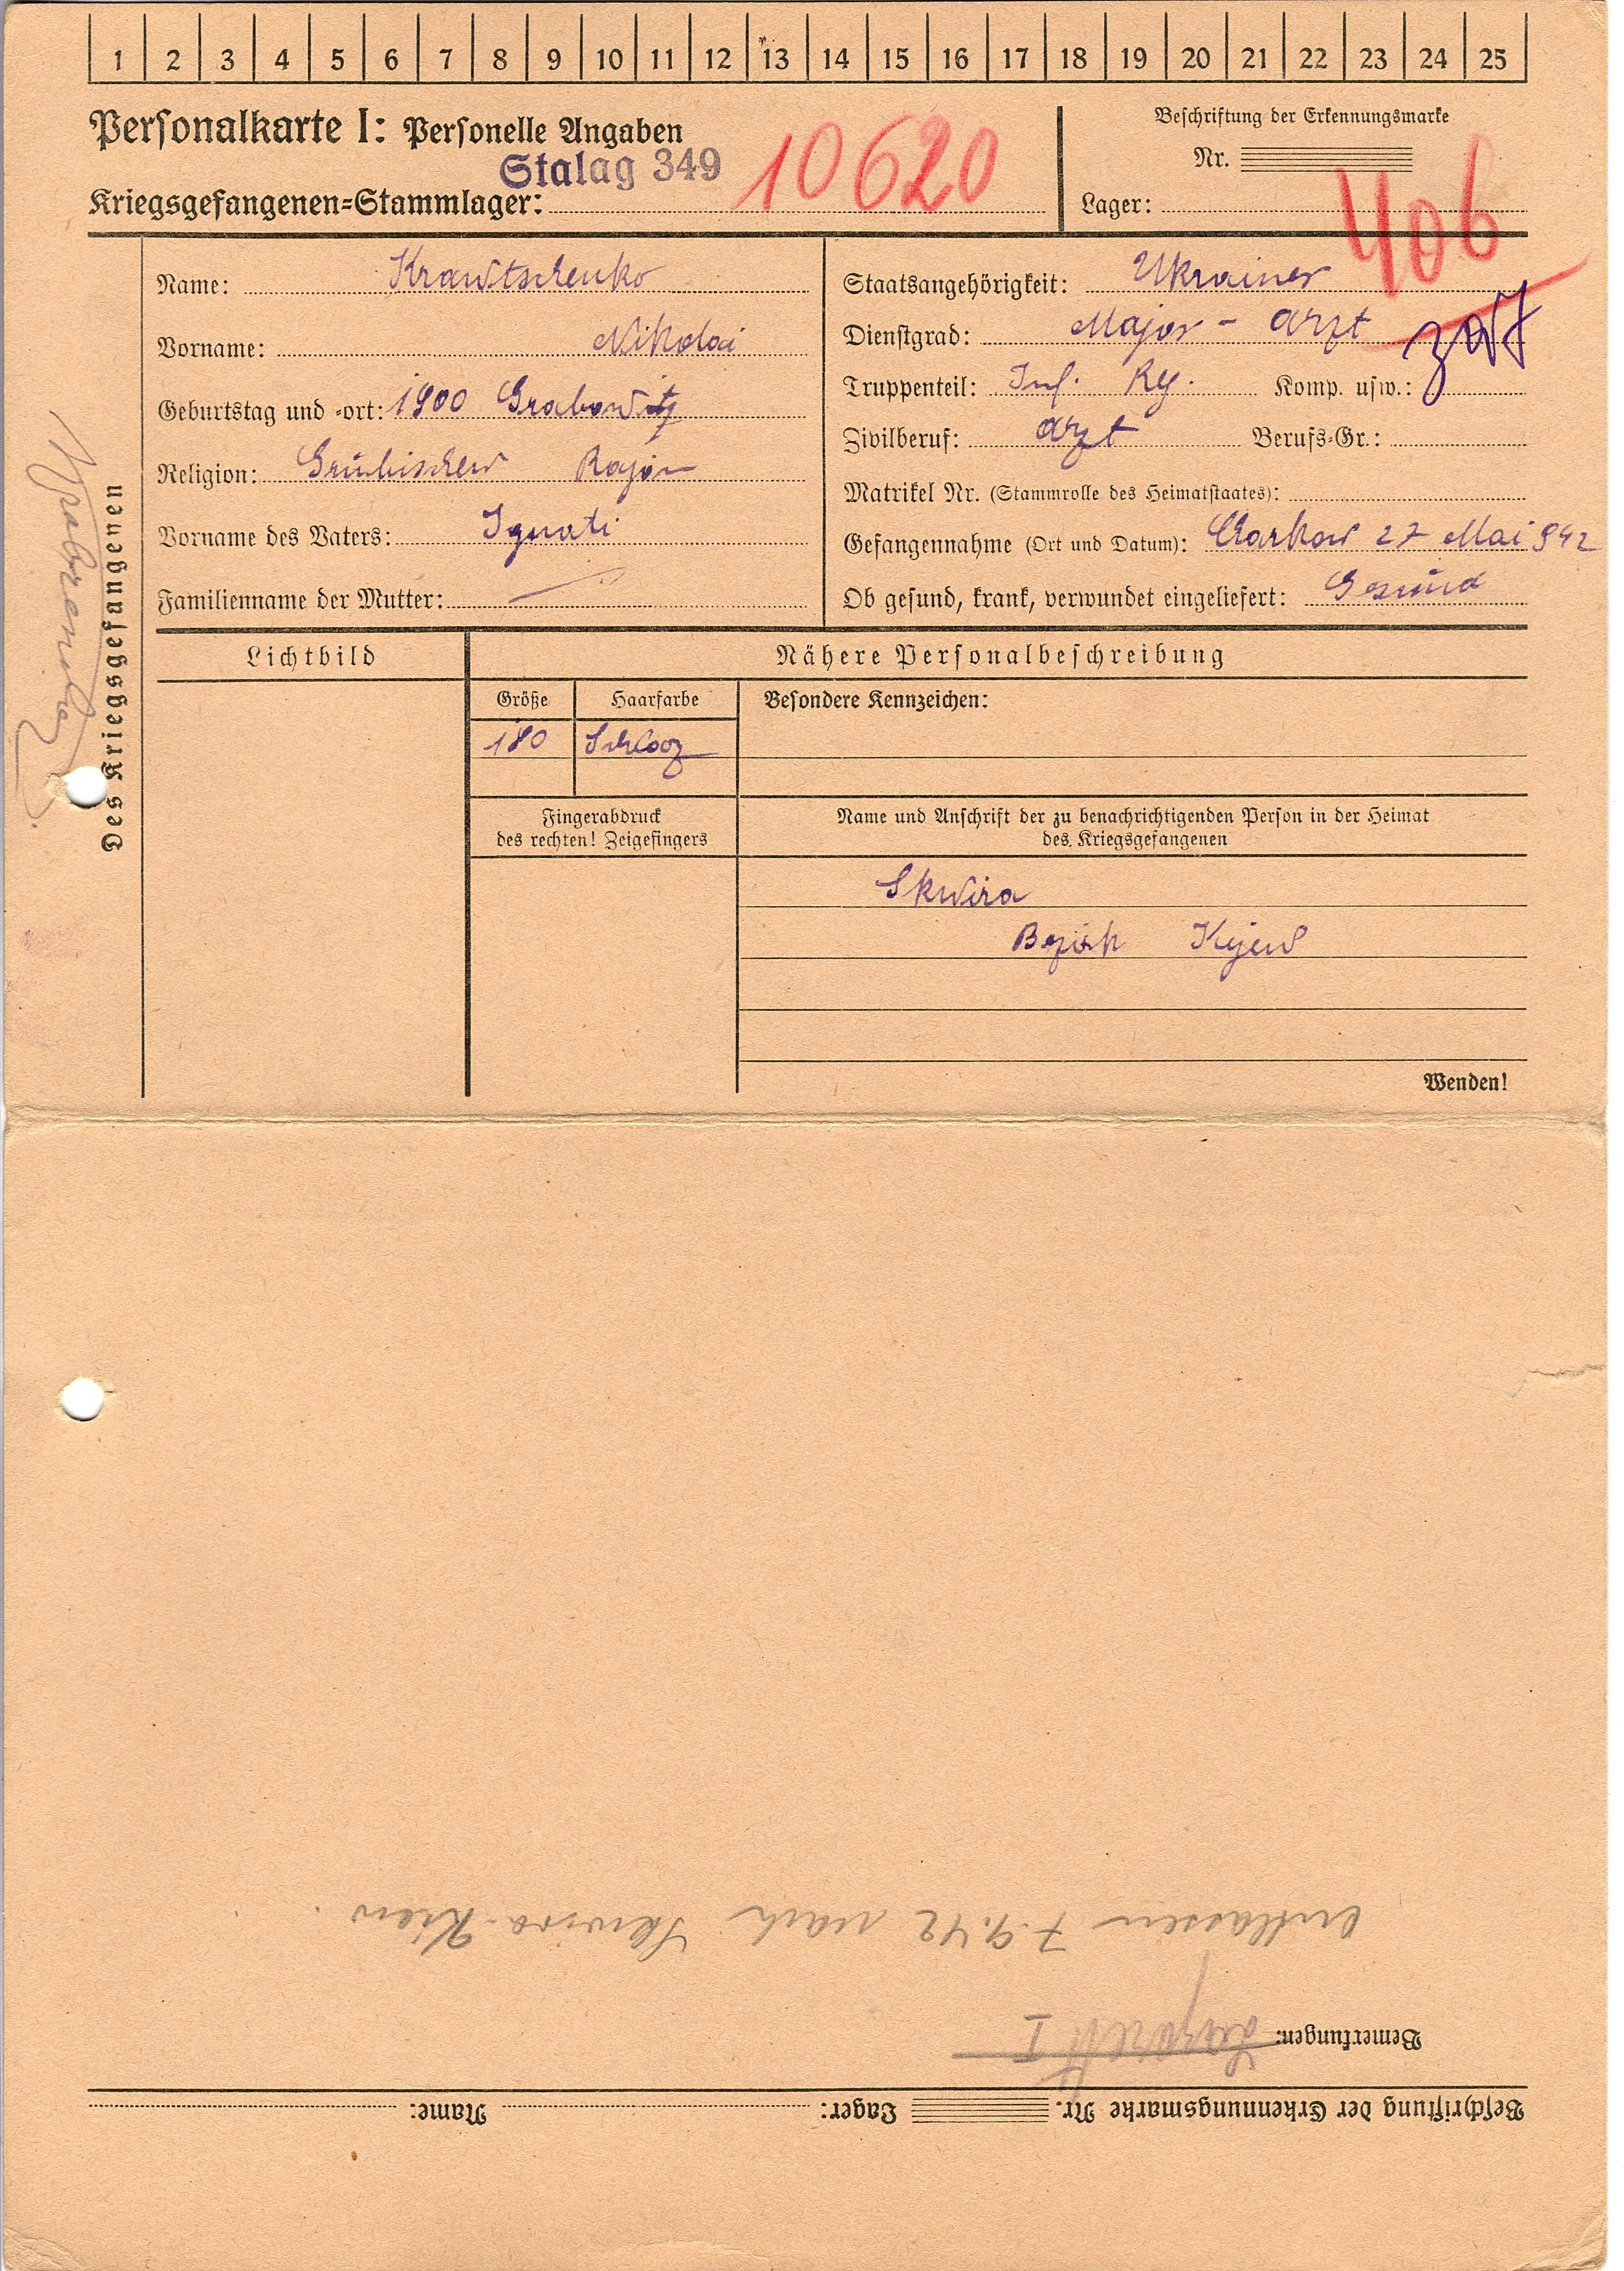 1 2 3 4 5 6 7 8 9 10 11 12 13 14 15 16 17 18 19 20 21 22 23 24 25
Personalkarte I: Personelle Angaben
Stalag 349
10620
Kriegsgefangenen-Stammlager:
Beschriftung der Erkennungsmarke
Nr.
Lager:
406
Des Kriegsgefangenen
Name: Krawtschenko
Vorname: Nikolai
Geburtstag und -ort: 1900 Grabowitz
Religion: Rajon
Vorname des Vaters: Ignati
Familienname der Mutter: —
Staatsangehörigkeit: Ukrainer
Dienstgrad: Major - arzt
Truppenteil: Inf. Reg. Komp. usw.:
Zivilberuf: arzt Berufs-Gr.:
Matrikel Nr. (Stammrolle des Heimatstaates):
Gefangennahme (Ort und Datum): Charkow 27 Mai 942
Ob gesund, krank, verwundet eingeliefert: Gesund
Lichtbild
Nähere Personalbeschreibung
Größe Haarfarbe Besondere Kennzeichen:
180
Fingerabdruck
des rechten! Zeigefingers
Name und Anschrift der zu benachrichtigenden Person in der Heimat
des Kriegsgefangenen
Skwira
Bezirk Kijew
Wenden!
Beschriftung der Erkennungsmarke Nr. Lager: Name:
Bemerkungen: Lazarett I
entlassen 7.9.42 nach Skwira-Kiew.